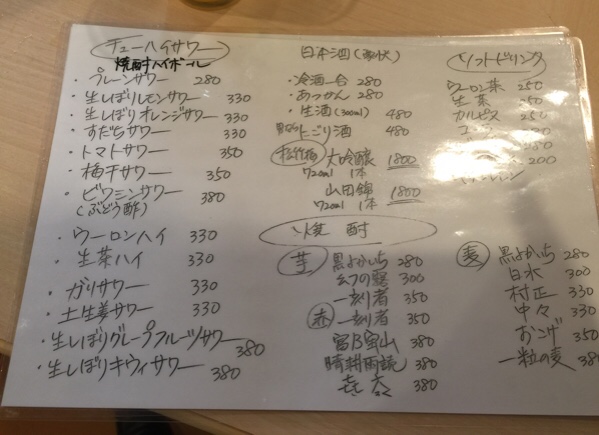 チューハイサワー
焼酎ハイボール
・プレーンサワー 280
・生しぼりレモンサワー 330
・生しぼりオレンジサワー 330
・すだちサワー 330
・トマトサワー 350
・梅干サワー 350
・ビワミンサワー 380
(ぶどう酢)
・ウーロンハイ 330
・生茶ハイ 330
・ガリサワー 330
・土生姜サワー 330
・生しぼりグレープフルーツサワー 380
・生しぼりキウィサワー 380
日本酒
・冷酒一合 280
・あつかん 280
・生酒(300ml) 480
にごり酒 480
松竹梅 大吟醸 1800
720ml 1本
山田錦 1800
720ml 1本
ソフトドリンク
ウーロン茶 250
生茶 250
カルピス 250
280
200
焼酎
芋 黒よかいち 280
幻の露 300
一刻者 350
赤 一刻者 350
富乃宝山 380
晴耕雨読 380
㐂六 380
麦 黒よかいち 280
白水 300
村正 330
中々 330
おこげ 350
一粒の麦 380